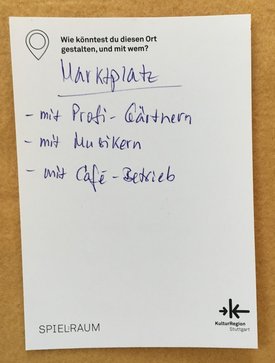 Wie könntest du diesen Ort
gestalten, und mit wem?
Marktplatz
- mit Profi-Gärtnern
- mit Musikern
- mit Café-Betrieb
SPIELRAUM
KulturRegion
Stuttgart